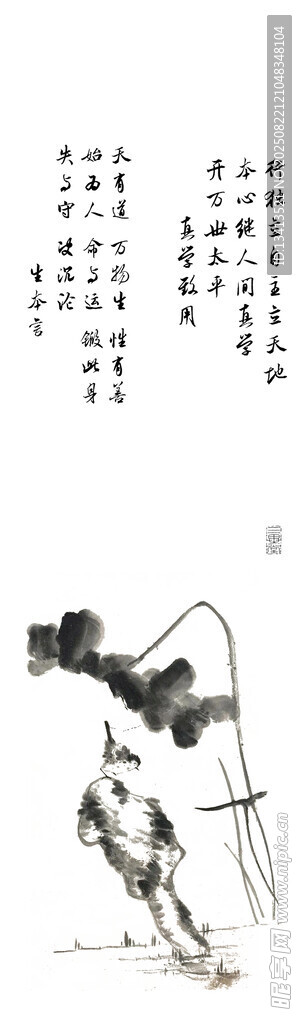 立自主立天地
本心继人间真学
开万世太平
真学致用
天有道 万物生 性有善
始为人 命与运 锻此身
失与守 沉论
生本言
昵享网 www.nipic.cn